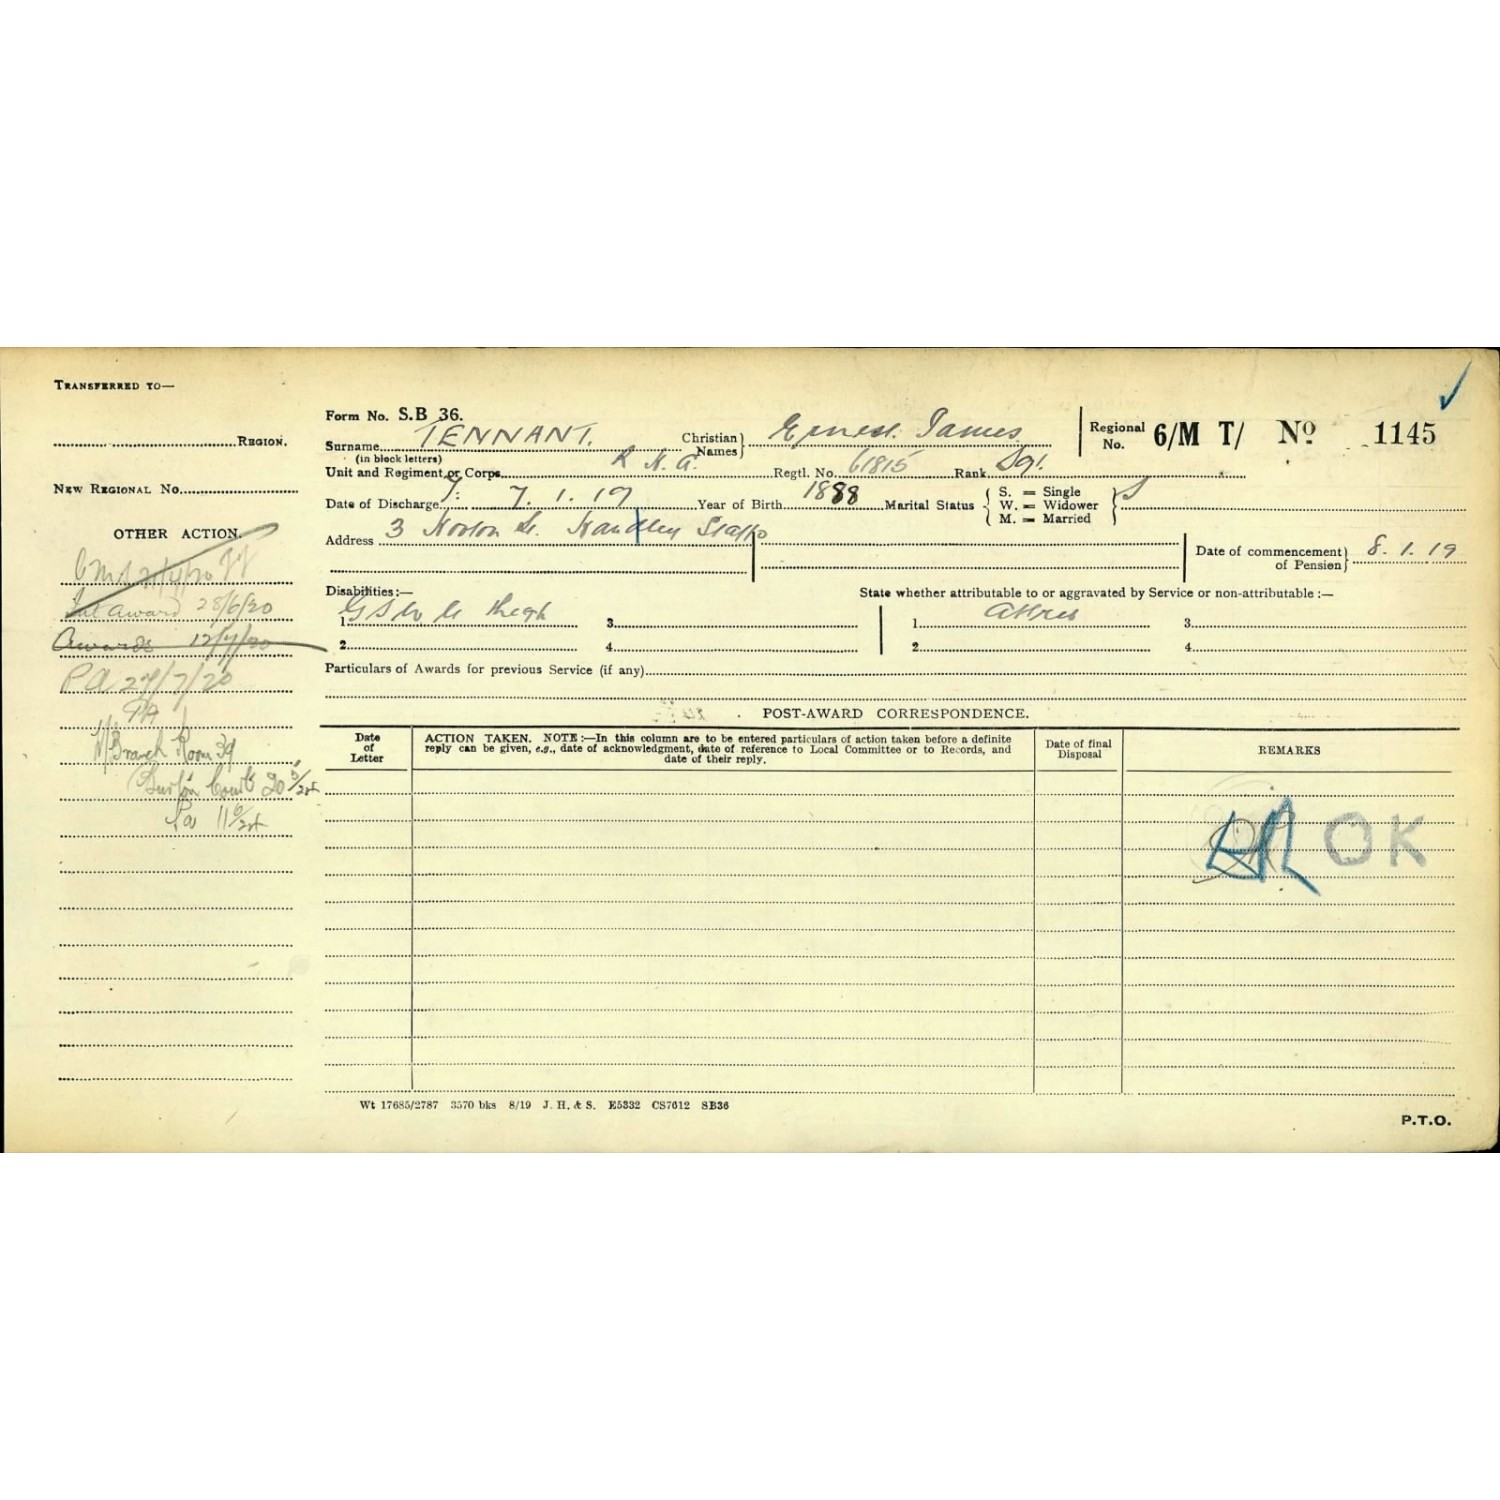 TRANSFERRED TO—
REGION.
NEW REGIONAL No.
OTHER ACTION.
Award 28/6/20
Awards 12/7/20
PA 27/7/20
PA
M/Branch Room 39
Burton Court 20 5/24
Pa 11 6/24
Form No. S.B 36.
Surname TENNANT. Christian Names Ernest James
(in block letters)
Regional No. 6/M T/ No 1145
Unit and Regiment or Corps R. F. A. Regtl. No. 61815 Rank Sgt.
Date of Discharge 7. 1. 19 Year of Birth 1888 Marital Status S. = Single W. = Widower M. = Married S
Address 3 St. Staffs
Date of commencement of Pension 8. 1. 19
Disabilities:—
State whether attributable to or aggravated by Service or non-attributable :—
1. G S W thigh 3. 1. 3.
2. 4. 2. 4.
Particulars of Awards for previous Service (if any)
POST-AWARD CORRESPONDENCE.
Date of Letter
ACTION TAKEN. NOTE :—In this column are to be entered particulars of action taken before a definite
reply can be given, e.g., date of acknowledgment, date of reference to Local Committee or to Records, and
date of their reply.
Date of final Disposal
REMARKS
OK
Wt 17685/2787 3570 bks 8/19 J. H. & S. E5332 CS7612 SB36
P.T.O.